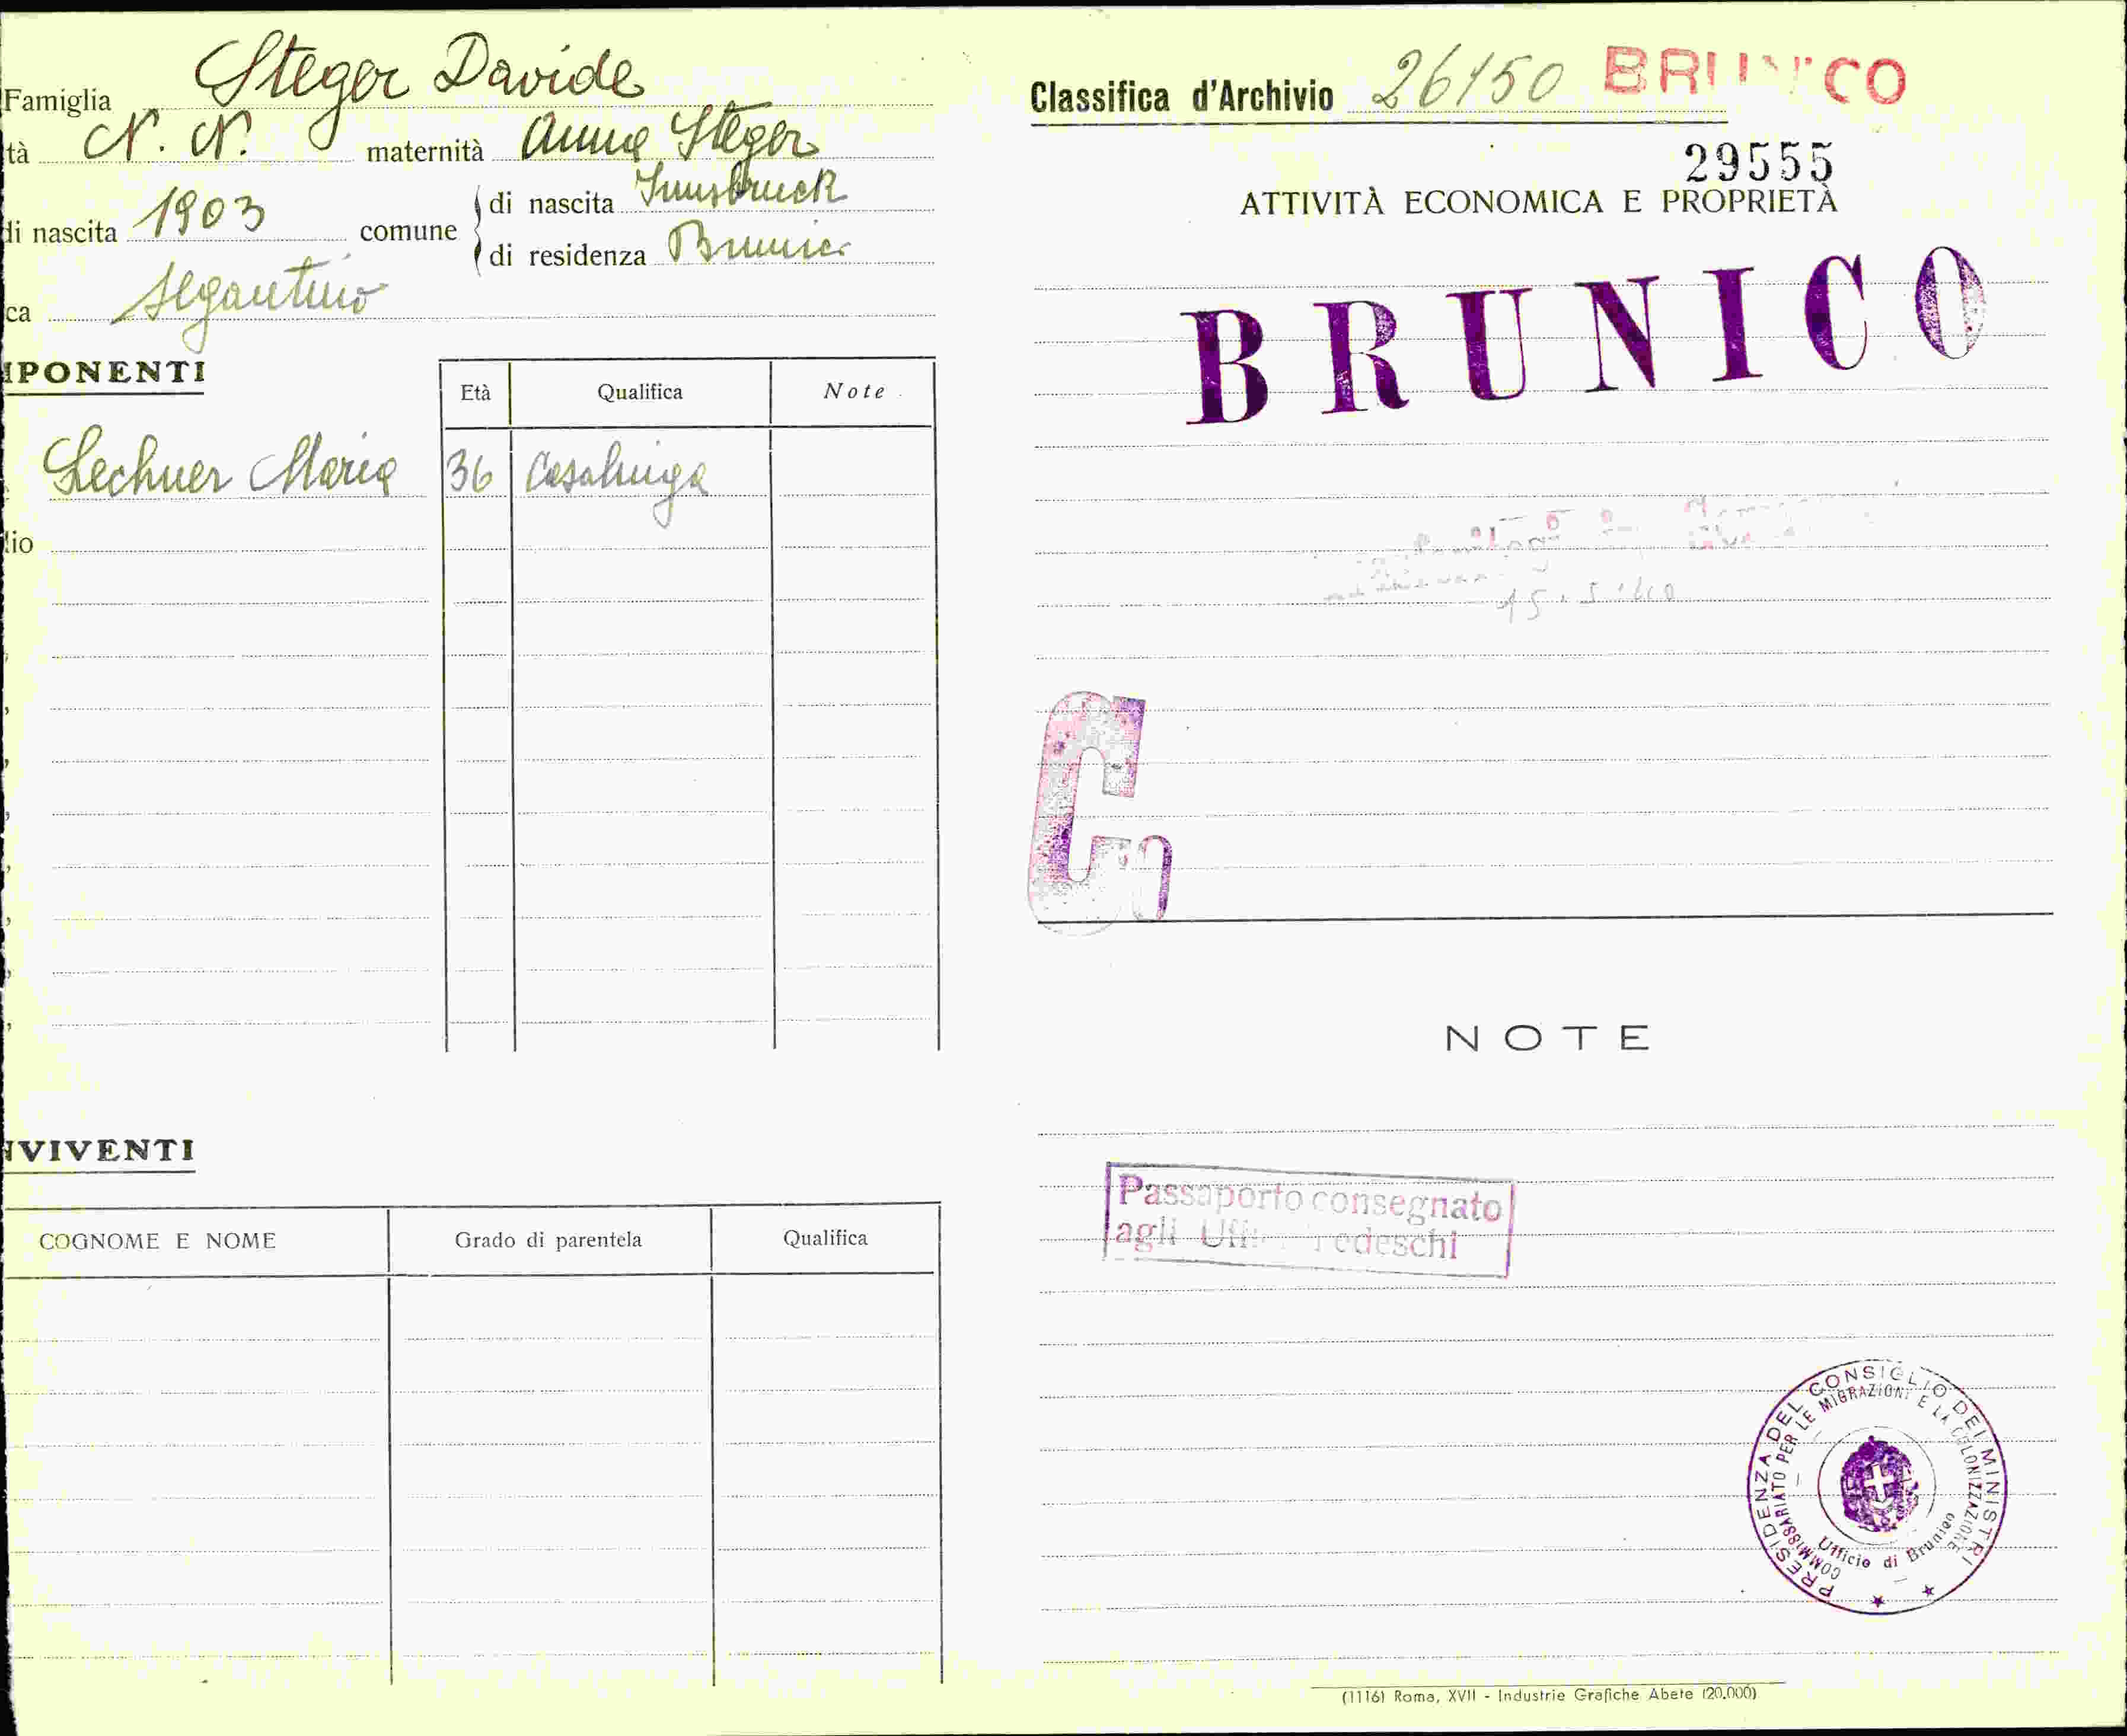 Famiglia Steger Davide
tà N. N. maternità Anna Steger
di nascita 1903 comune di nascita Innsbruck
di residenza Brunico
ca Segantino
MPONENTI
Età Qualifica Note
Lechner Maria 36 Casalinga
lio
NVIVENTI
COGNOME E NOME Grado di parentela Qualifica
Classifica d'Archivio 26150 BRUNICO
29555
ATTIVITÀ ECONOMICA E PROPRIETÀ
BRUNICO
NOTE
Passaporto consegnato
agli Uffici Tedeschi
PRESIDENZA DEL CONSIGLIO DEI MINISTRI
COMMISSARIATO PER LE MIGRAZIONI E LA COLONIZZAZIONE
Ufficio di Brunico
(1116) Roma, XVII - Industrie Grafiche Abete (20.000)